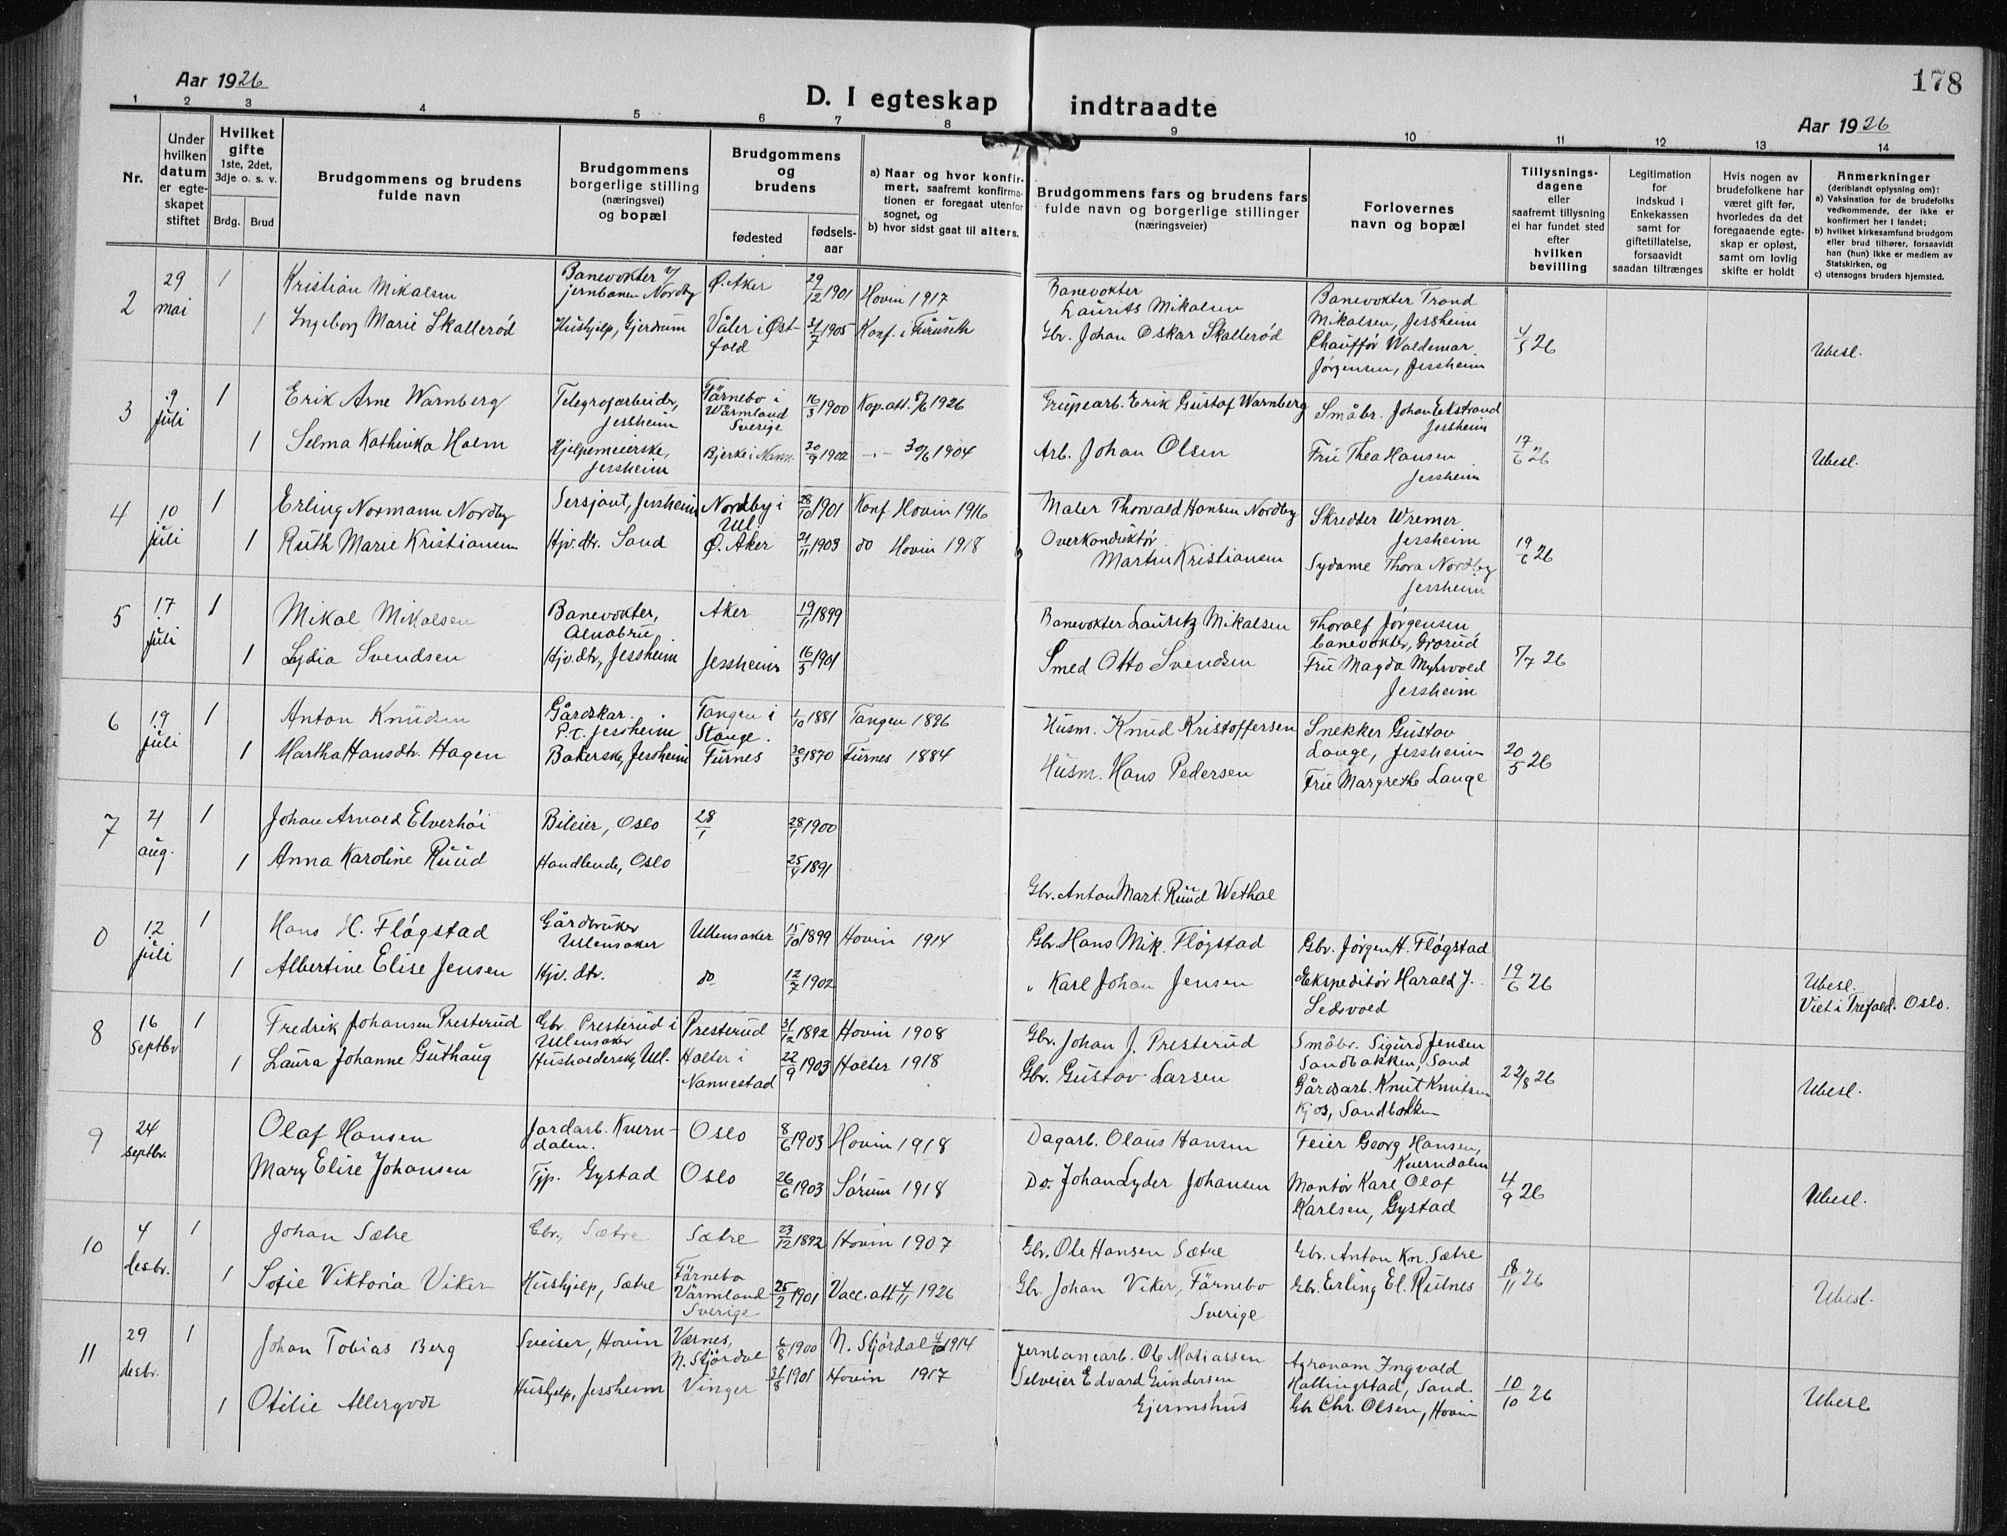 178
Aar 1926
D. I egteskap indtraadte
Aar 1926
1 2 3 4 5 6 7 8 9 10 11 12 13 14
Nr.
Under hvilken datum er egteskapet stiftet
Hvilket gifte 1ste, 2det, 3dje o. s. v.
Brdg. Brud
Brudgommens og brudens fulde navn
Brudgommens borgerlige stilling (næringsvei) og bopæl
Brudgommens og brudens
fødested
fødselsaar
a) Naar og hvor konfirmert, saafremt konfirmationen er foregaat utenfor sognet, og
b) hvor sidst gaat til alters.
Brudgommens fars og brudens fars fulde navn og borgerlige stillinger (næringsveier)
Forlovernes navn og bopæl
Tillysningsdagene eller saafremt tillysning ei har fundet sted efter hvilken bevilling
Legitimation for indskud i Enkekassen samt for giftetillatelse, forsaavidt saadan tiltrænges
Hvis nogen av brudefolkene har været gift før, hvorledes da det foregaaende egteskap er opløst, samt om lovlig skifte er holdt
Anmerkninger (deriblandt oplysning om):
a) Vaksination for de brudefolks vedkommende, der ikke er konfirmert her i landet;
b) hvilket kirkesamfund brudgom eller brud tilhører, forsaavidt han (hun) ikke er medlem av Statskirken, og
c) utensogns bruders hjemsted.
2 29 mai 1 Kristian Mikalsen Banevokter v/ jernbanen Nordby Ø. Aker 29/12 1901 Hovin 1917 Banevokter Laurits Mikalsen Banevokter Trond Mikalsen, Jessheim
1 Ingeborg Marie Skallerød Hushjelp, Gjerdrum Våler i Østfold 31/7 1905 Konf. i Furuseth Gbr. Johan Oskar Skallerød Chauffør Waldemar Jørgensen, Jessheim 4/5 26 Ubesl.
3 9 juli 1 Erik Arne Warnberg Telegrafarbeider, Jessheim Färnebo i Wärmland Sverige 16/3 1900 Kop.att. 8/6 1926 Grupearb. Erik Gustaf Warnberg Småbr. Johan Ekstrand Jessheim
1 Selma Kathinka Holm Hjelpemeierske, Jessheim Bjerke i Nann. 30/9 1902 -"- 30/6 1904 Arb. Johan Olsen Fru Thea Hansen Jessheim 17/6 26 Ubesl.
4 10 juli 1 Erling Normann Nordby Sersjant, Jessheim Nordby i Ul. 28/10 1901 Konf. Hovin 1916 Maler Thorvald Hansen Nordby Skredder Wremer Jessheim
1 Ruth Marie Kristiansen Hjv. dtr. Sand Ø. Aker 21/11 1903 do Hovin 1918 Overkonduktør Martin Kristiansen Sydame Thora Nordby Jessheim 19/6 26
5 17 juli 1 Mikal Mikalsen Banevokter, Alnabru Aker 19/11 1899 Banevokter Lauritz Mikalsen Thoralf Jørgensen banevokter, Grorud
1 Lydia Svendsen Hjv. dtr, Jessheim Jessheim 16/3 1901 Smed Otto Svendsen Fru Magda Myhrvold Jessheim 5/7 26
6 19 juli 1 Anton Knudsen Gårdskar. P.t. Jessheim Tangen i Stange. 1/10 1881 Tangen 1896 Husm. Knud Kristoffersen Snekker Gustav Lange, Jessheim
1 Martha Hansdtr. Hagen Bakerske, Jessheim Furnes 30/3 1870 Furnes 1884 Husm. Hans Pedersen Fru Margrethe Lange 20/5 26
7 21 aug. 1 Johan Arnold Elverhöi Bileier, Oslo 28/1 28/1 1900
1 Anna Karoline Ruud Handlende, Oslo 25/4 1891 Gbr. Anton Mart. Ruud Wethal
0 12 juli 1 Hans H. Fløgstad Gårdbruker Ullensaker Ullensaker 15/10 1899 Hovin 1914 Gbr. Hans Mik. Fløgstad Gbr. Jørgen H. Fløgstad
1 Albertine Elise Jensen Hjv. dtr. do 12/7 1902 " Karl Johan Jensen Ekspeditør Harald J. Ledsvold 19/6 26 Ubesl. Viet i Trefold. Oslo.
8 16 Septbr 1 Fredrik Johansen Presterud Gbr. Presterud i Ullensaker Presterud 31/12 1892 Hovin 1908 Gbr. Johan J. Presterud Småbr. Sigurd Jensen Sandbakken, Sand
1 Laura Johanne Guthaug Husholderske, Ul. Holter i Nannestad 22/9 1903 Holter 1918 Gbr. Gustav Larsen Gårdsarb. Knut Knutsen Kjos, Sandbakken 22/8 26 Ubesl.
9 24 Septbr. Olaf Hansen Jordarb. Kverndalen. Oslo 8/6 1903 Hovin 1918 Dagarb. Olaus Hansen Feier Georg Hansen, Kverndalen
Mary Elise Johansen Tjp. Gystad Oslo 26/6 1903 Sørum 1918 Do. Johan Lyder Johansen Montør Karl Olaf Karlsen, Gystad 4/9 26 Ubesl.
10 4 desbr. 1 Johan Sætre Gbr., Sætre Sætre 23/12 1892 Hovin 1907 Gbr. Ole Hansen Sætre Gbr. Anton Kn. Sætre
1 Sofie Viktoria Viker Hushjelp, Sætre Färnebo Värmland Sverige 25/2 1901 Vacc. att 4/11 1926 Gbr Johan Viker, Färnebo Sverige Gbr. Erling El. Rutnes 18/11 26 Ubesl.
11 29 desbr. 1 Johan Tobias Berg Sveiser, Hovin Værnes, N. Stjørdal 6/8 1900 N. Stjørdal 4/10 1914 Jernbanearb. Ole Matiassen Agronom Ingvald Hallingstad, Sand.
1 Otilie Allergodt Hushjelp, Jessheim Vinger 31/8 1901 Hovin 1917 Selveier Edvard Gundersen Gjermshus Gbr Chr. Olsen, Hovin 10/10 26 Ubesl